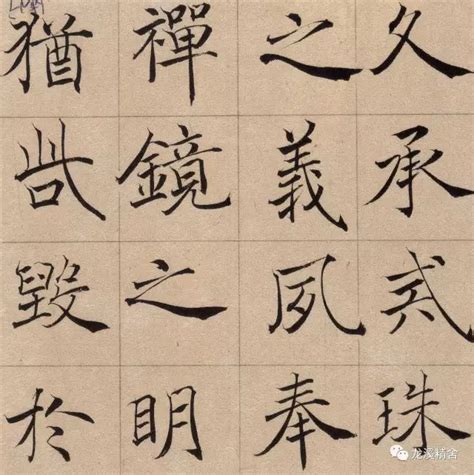 久承戒珠
之義夙奉
禪鏡之眀
猶呰毀於
龙溪精舍